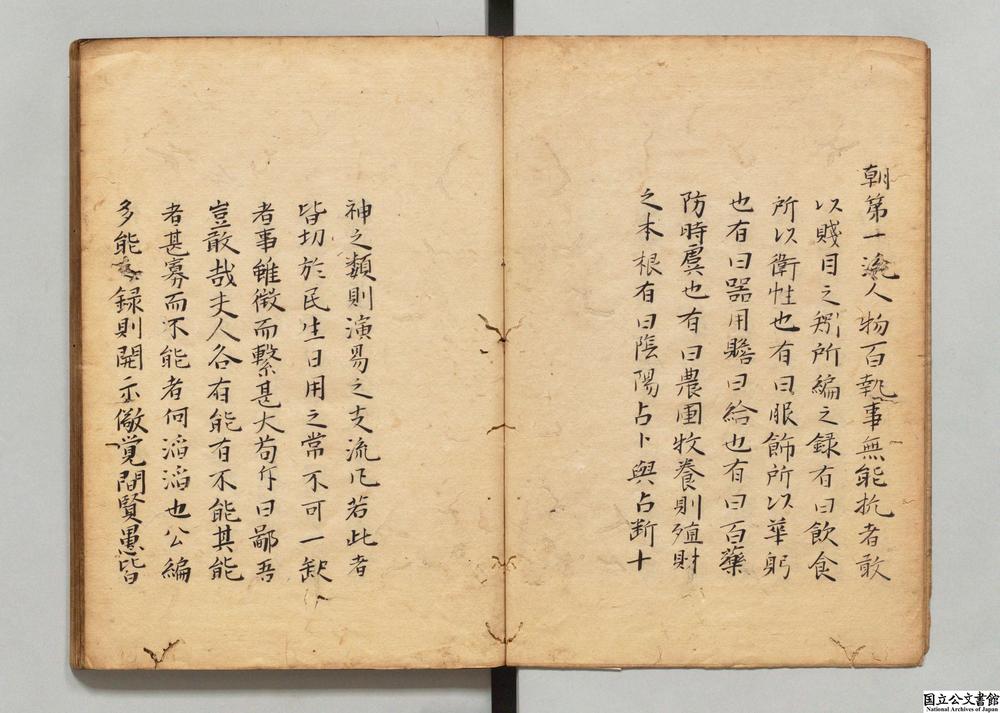 朝第一流人物百執事無能抗者敢
以賤目之矧所編之録有曰飲食
所以衛性也有曰服飾所以華躬
也有曰器用贍曰給也有曰百藥
防時虞也有曰農圃牧養則殖財
之本根有曰陰陽占卜與占断十
神之類則演易之支流凡若此者
皆切於民生日用之常不可一缺
者事雖微而繋甚大苟斥曰鄙吾
豈敢哉夫人各有能有不能其能
者甚寡而不能者何滔滔也公編
多能録則開示儆覚間賢愚皆
国立公文書館
National Archives of Japan